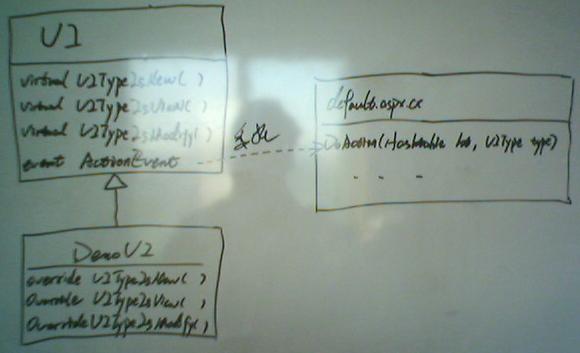 UI
virtual UIType2sNew( )
virtual UIType2sView( )
virtual UIType2sModify( )
event ActionEvent
default.aspx.cs
DoAction(Hashtable ht, UIType type)
. . .
DemoUI
override UIType2sNew( )
Override UIType2sView( )
Override UIType2sModify( )